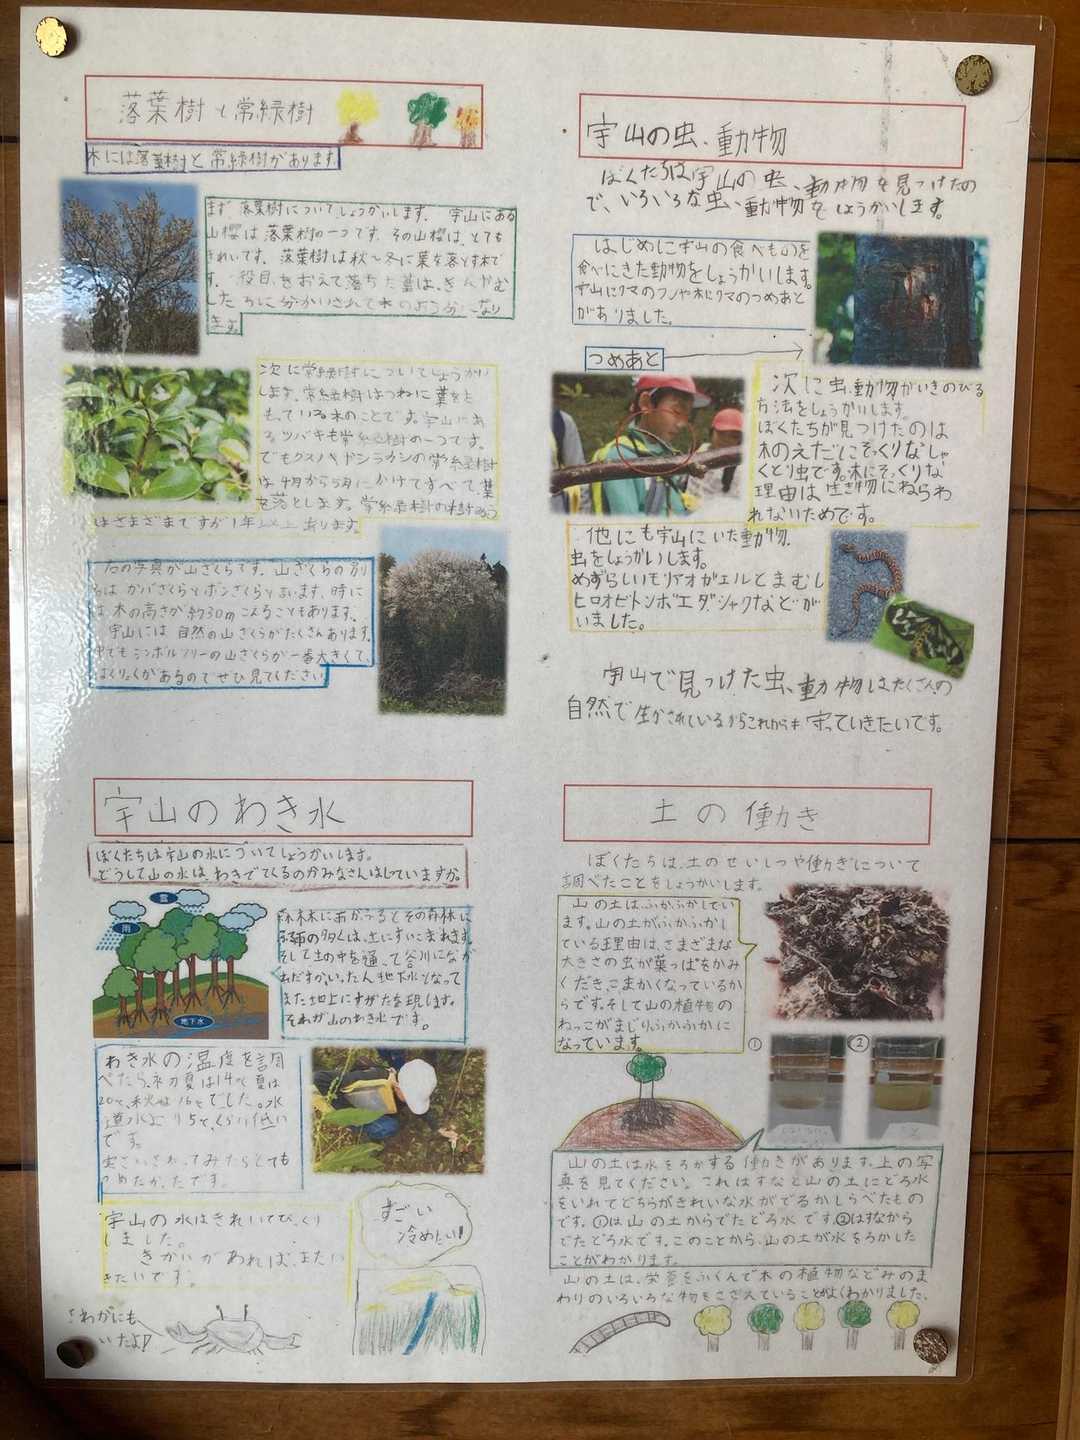 落葉樹と常緑樹
木には落葉樹と常緑樹があります。
まず落葉樹についてしょうかいします。宇山にある
山桜は落葉樹の一つです。その山桜は、とても
きれいです。落葉樹は秋〜冬に葉を落とす木で
す。役目をおえて落ちた葉は、きんやむ
したちに分かいされて木のようぶんになり
ます。
次に常緑樹についてしょうかい
します。常緑樹はつねに葉をも
もっている木のことです。宇山にあ
るツバキも常緑樹の一つです。
でもクスノキ
は4月から5月にかけてすべて、葉
を落とします。常緑樹の
はさまざまですが1年以上あります。
右の写真が山ざくらです。山ざくらの別
名はカバざくらとボンざくらといいます。時に
は木の高さが約30mこえることもあります。
宇山には自然の山ざくらがたくさんあります。
中でもシンボルツリーの山ざくらが一番大きくて、
はくりょくがあるのでぜひ見てください
宇山の虫、動物
ぼくたちは宇山の虫、動物を見つけたの
で、いろいろな虫、動物をしょうかいします。
はじめに宇山の食べものを
食べにきた動物をしょうかいします。
宇山にクマのフンや木にクマのつめあと
がありました。
つめあと
次に虫、動物がいきのびる
方法をしょうかいします。
ぼくたちが見つけたのは
木のえだにそっくりなしゃ
くとり虫です。木にそっくりな
理由は生き物にねらわ
れないためです。
他にも宇山にいた動物、
虫をしょうかいします。
めずらしいモリアオガエルとまむし
ヒロオビトンボエダシャクなどが
いました。
宇山で見つけた虫、動物はたくさんの
自然で生かされているからこれからも守っていきたいです。
宇山のわき水
ぼくたちは宇山の水についてしょうかいします。
どうして山の水は、わきでてくるのかみなさんはしていますか。
雲
雨
地下水
森林にあめがふるとその森林に
の多くは、土にすいこまれます。
そして土の中を通って谷川になが
れだすか、いったん地下水となって
また地上にすがたを現します。
それが山のわき水です。
わき水の温度を調
べたら、初夏は14℃夏は
20℃、秋は16℃でした。水
道水より5℃くらい低い
です。
さわってみたらとても
つめたかったです。
宇山の水はきれいでびっくり
しました。
きかいがあれば、またい
きたいです。
すごい
冷めたい!!
さわがにも
いたよ!
土の働き
ぼくたちは、土のせいしつや働きについて
調べたことをしょうかいします。
山の土は、ふかふかしてい
ます。山の土がふかふかし
ている理由は、さまざまな
大きさの虫が葉っぱをかみ
くだき、こまかくなっているか
らです。そして山の植物の
ねっこがまじりふかふかに
なっています。
① ②
山の土は水をろかする働きがあります。上の写
真を見てください。これはすなと山の土にどろ水
をいれてどちらがきれいな水がでるかしらべたもの
です。①は山の土からでたどろ水です。②はすなから
でたどろ水です。このことから、山の土が水をろかした
ことがわかります。
山の土は、栄養をふくんで木の植物などみのま
わりのいろいろな物をささえていることがよくわかりました。